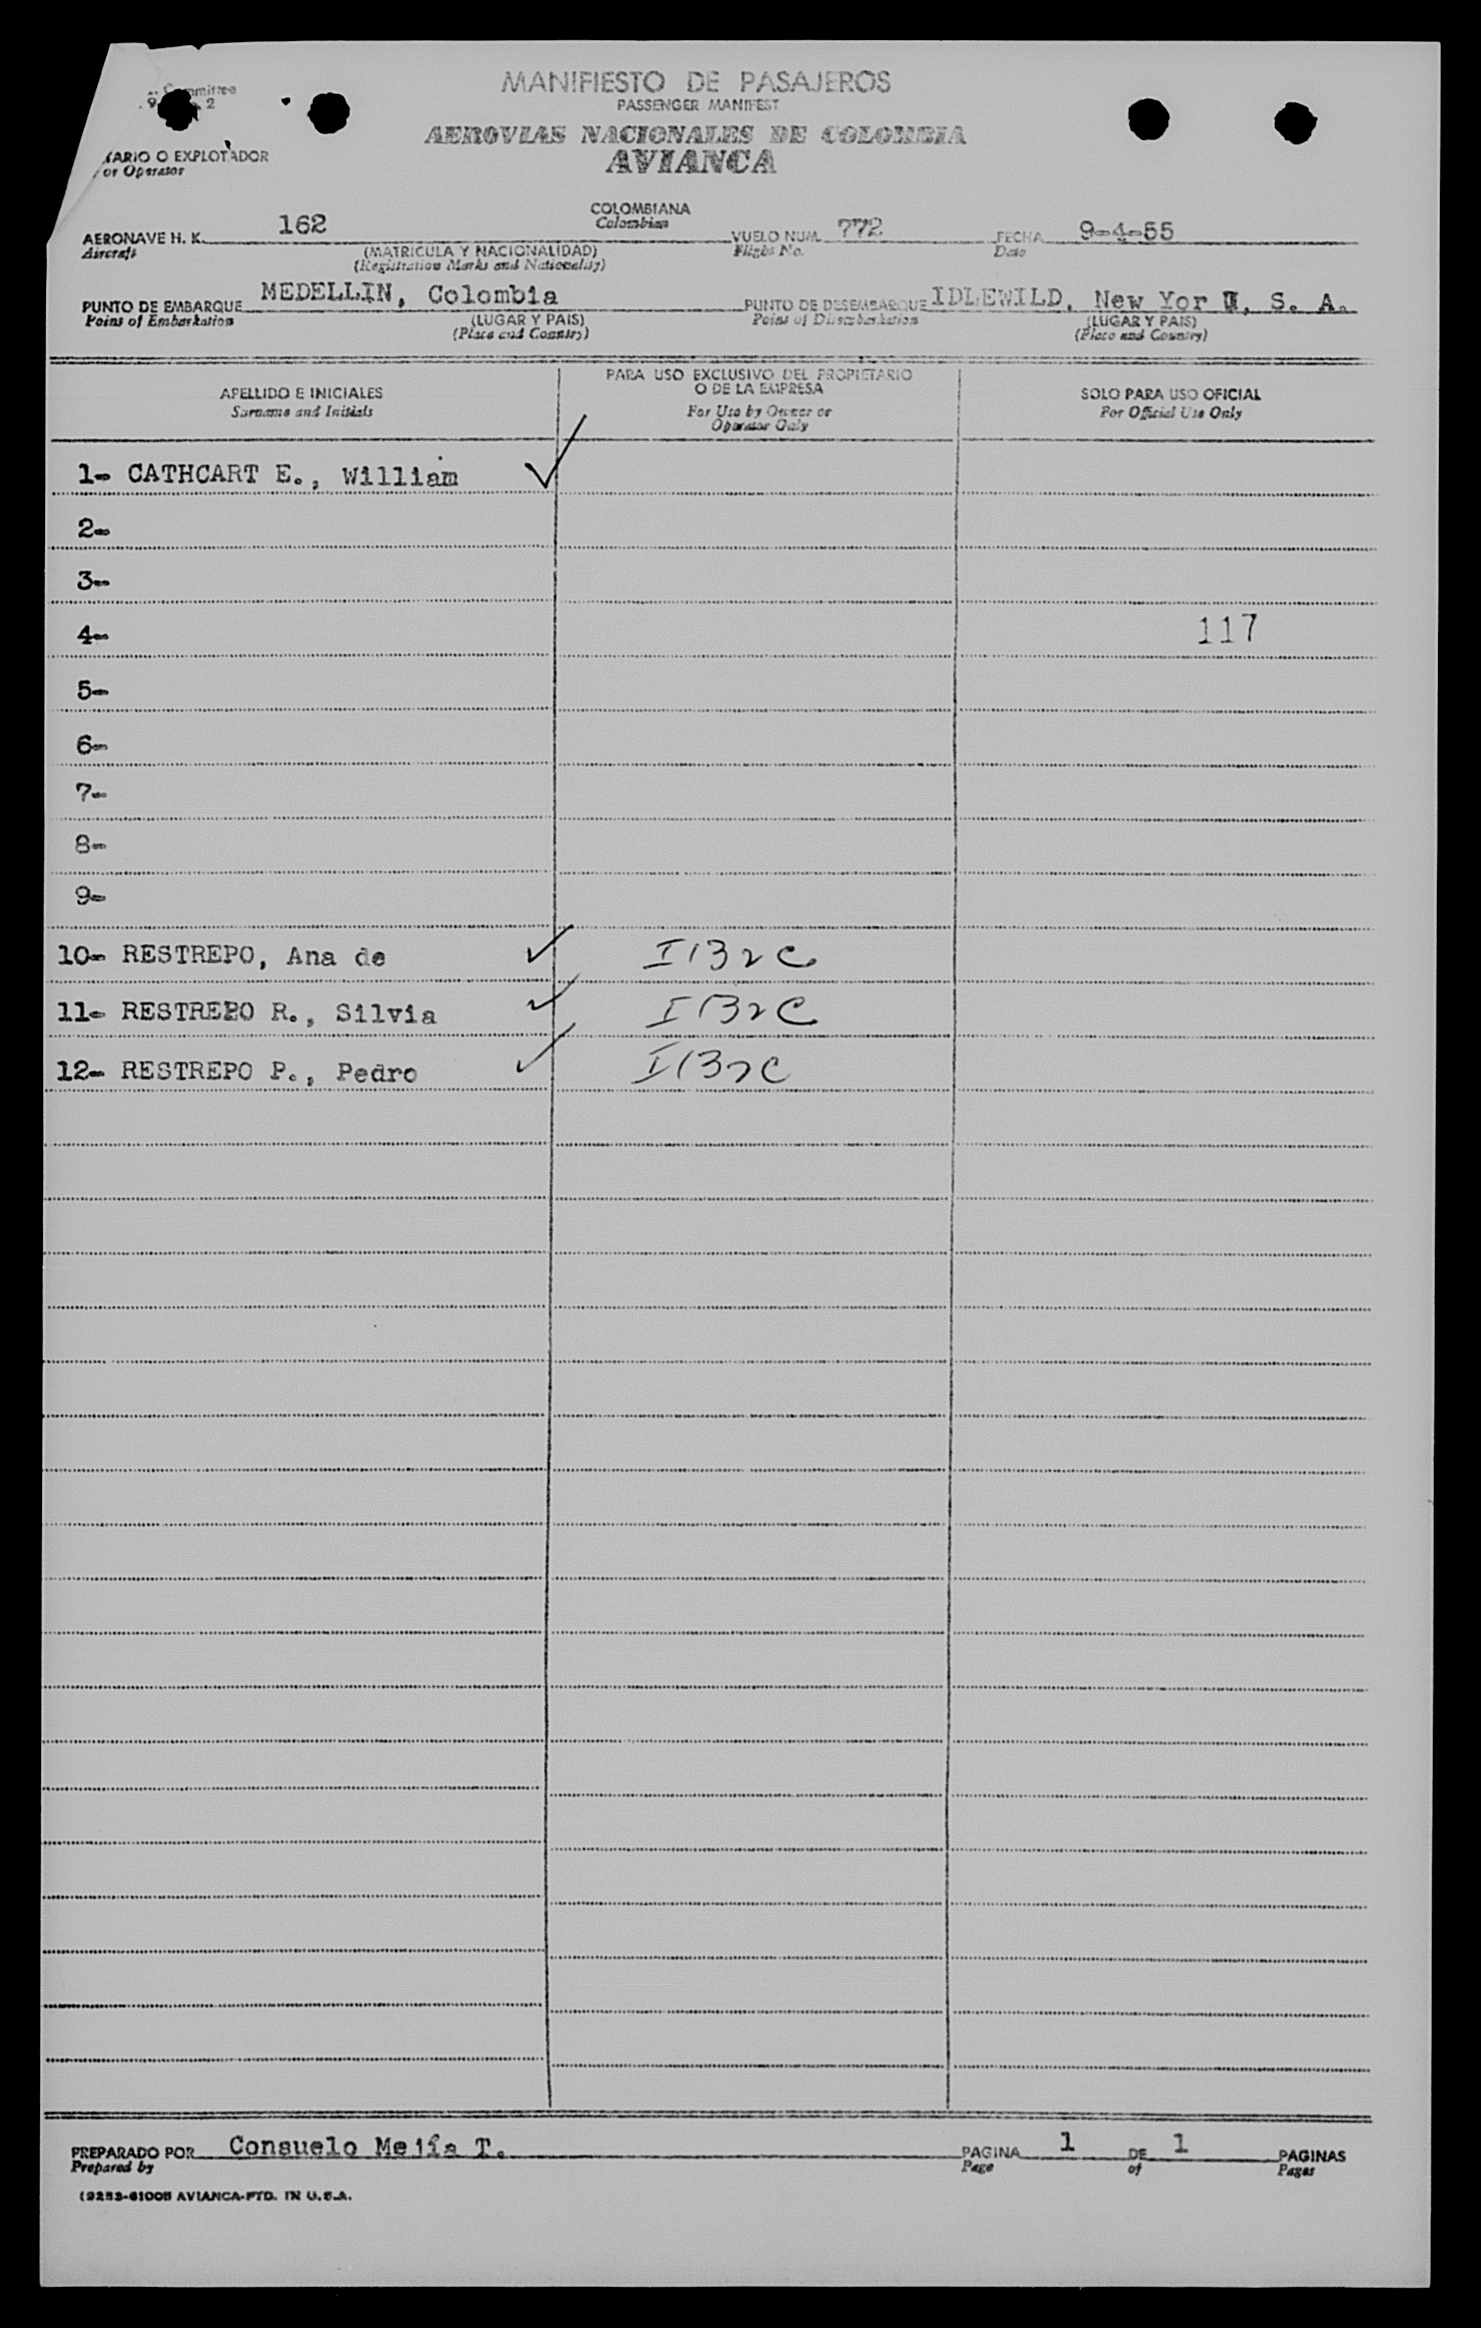 Committee
9 2
MANIFIESTO DE PASAJEROS
PASSENGER MANIFEST
AEROVIAS NACIONALES DE COLOMBIA
AVIANCA
TARIO O EXPLOTADOR
or Operator
AERONAVE H. K. 162 COLOMBIANA VUELO NUM. 772 FECHA 9-4-55
Aircraft Colombian Flight No. Date
(MATRICULA Y NACIONALIDAD)
(Registration Marks and Nationality)
PUNTO DE EMBARQUE MEDELLIN, Colombia PUNTO DE DESEMBARQUE IDLEWILD, New Yor U, S. A.
Point of Embarkation (LUGAR Y PAIS) Point of Disembarkation (LUGAR Y PAIS)
(Place and Country) (Place and Country)
APELLIDO E INICIALES
Surname and Initials
PARA USO EXCLUSIVO DEL PROPIETARIO
O DE LA EMPRESA
For Use by Owner or
Operator Only
SOLO PARA USO OFICIAL
For Official Use Only
1- CATHCART E., William
2-
3-
4- 117
5-
6-
7-
8-
9-
10- RESTREPO, Ana de I132C
11- RESTREPO R., Silvia I132C
12- RESTREPO P., Pedro I132C
PREPARADO POR Consuelo Mejía T. PAGINA 1 DE 1 PAGINAS
Prepared by Page of Pages
(9253-6100B AVIANCA-PTD. IN U.S.A.